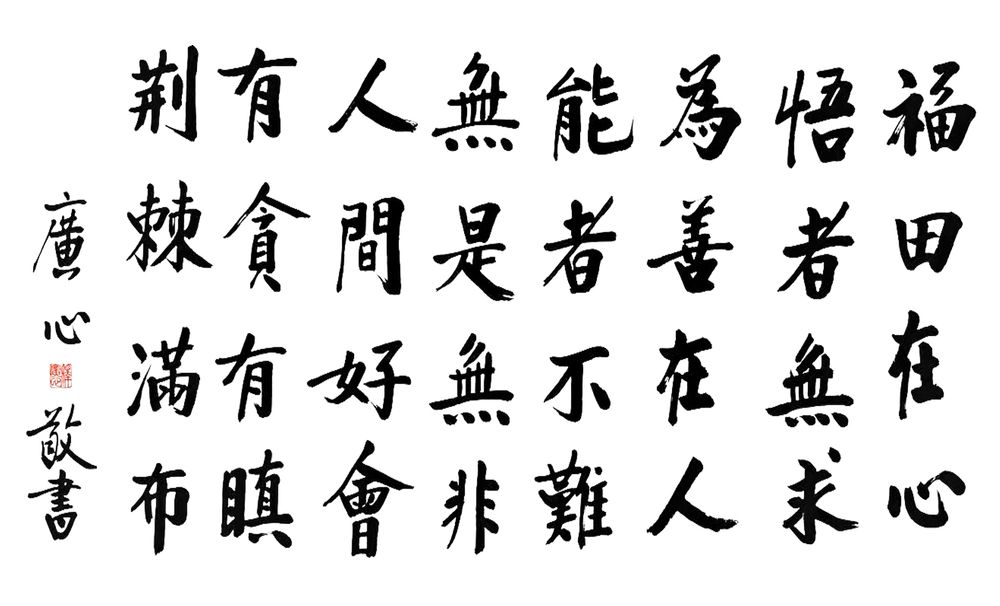 福田在心
悟者無求
為善在人
能者不難
無是無非
人間好會
有貪有瞋
荆棘滿布
廣心
敬書